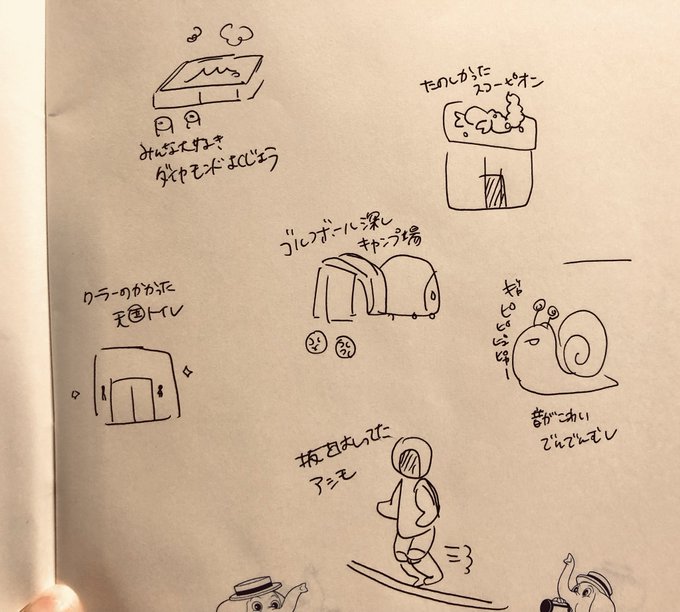 たのしかった
スコーピオン
みんな大好き
ダイヤモンドよくじょう
ゴルフボール深し
キャンプ場
クーラーのかかった
天国トイレ
ギョ
ピ
ピ
ピャー
音がこわい
でんでんむし
坂をはしってた
アシモ